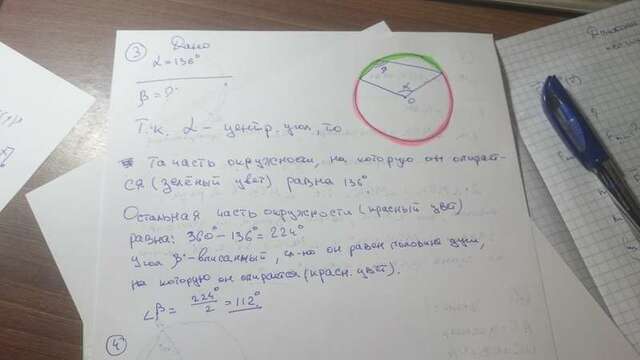 3
Дано
α = 136°
β = ?
Т.к. α - центр. угол, то
та часть окружности, на которую он опирает-
ся (зелёный цвет) равна 136°.
Остальная часть окружности (красный цвет)
равна: 360° - 136° = 224°
Угол β - вписанный, он равен половине дуги,
на которую он опирается (красн. цвет).
∠β = 224°/2 = 112°
4
α
O